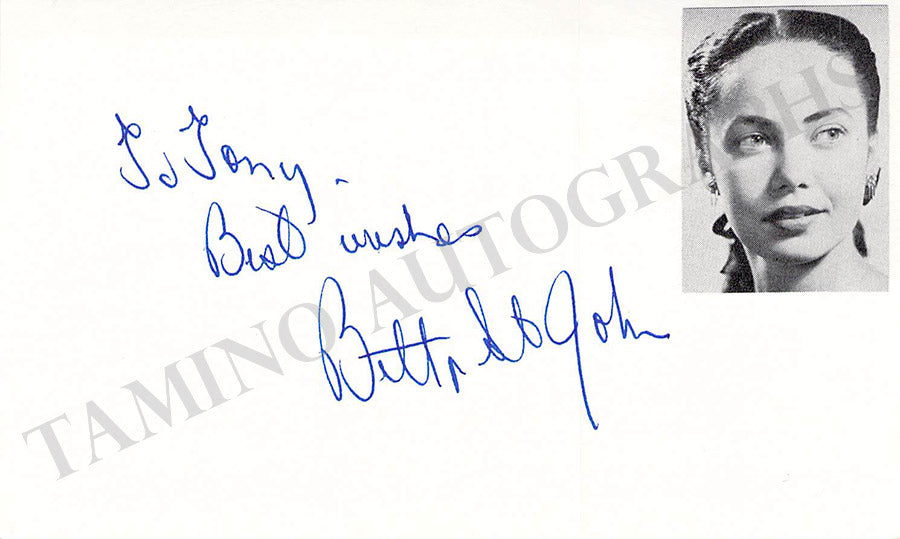 To Tony.
Best wishes
Betta St John
TAMINO AUTOGRAPHS